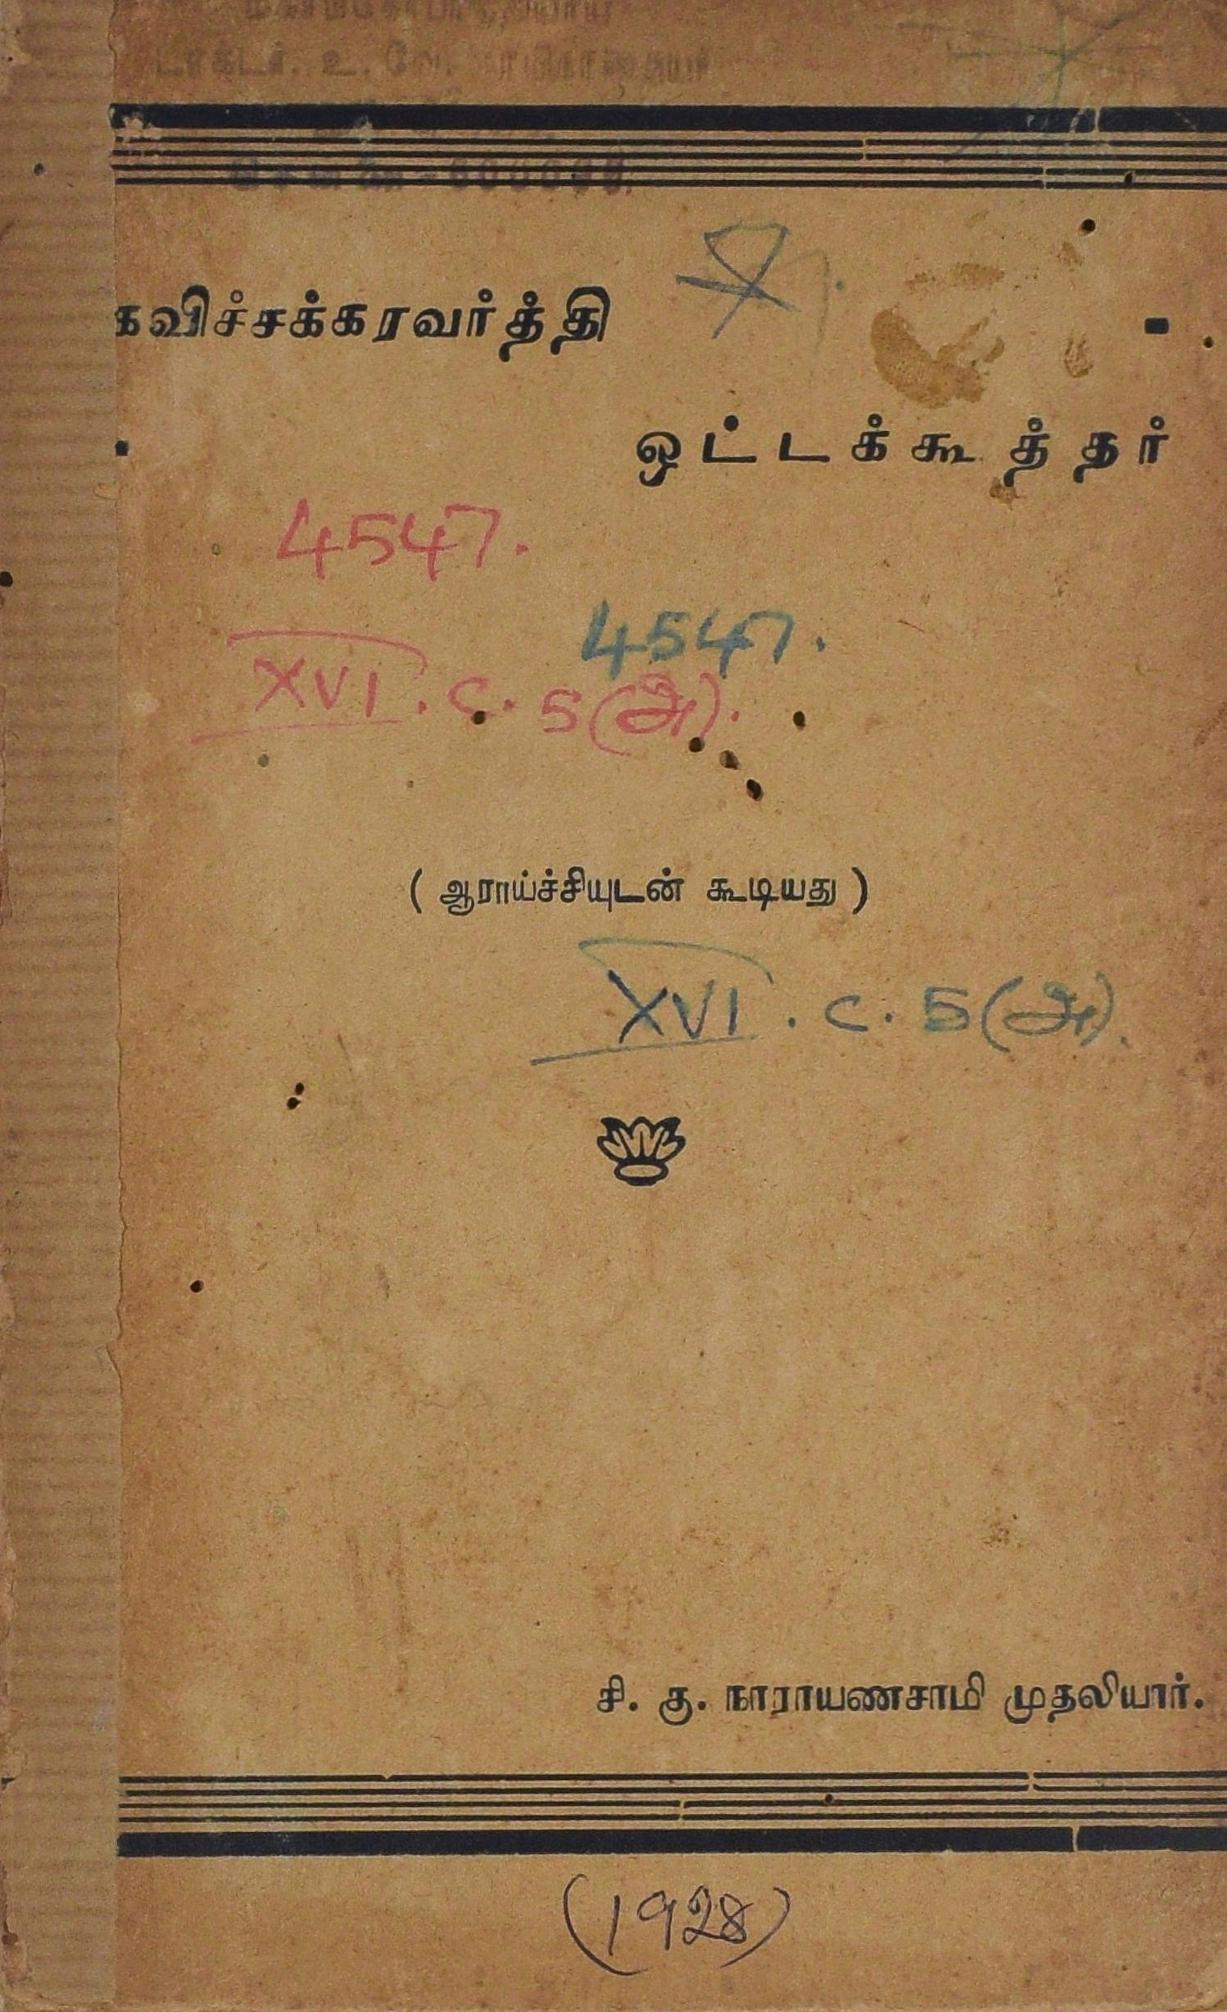 டாக்டர். உ. வே.
கவிச்சக்கரவர்த்தி
ஒட்டக்கூத்தர்
4547.
4547.
XVI. C. 5(அ).
(ஆராய்ச்சியுடன் கூடியது)
XVI. C. 5(அ).
சி. கு. நாராயணசாமி முதலியார்.
(1928)